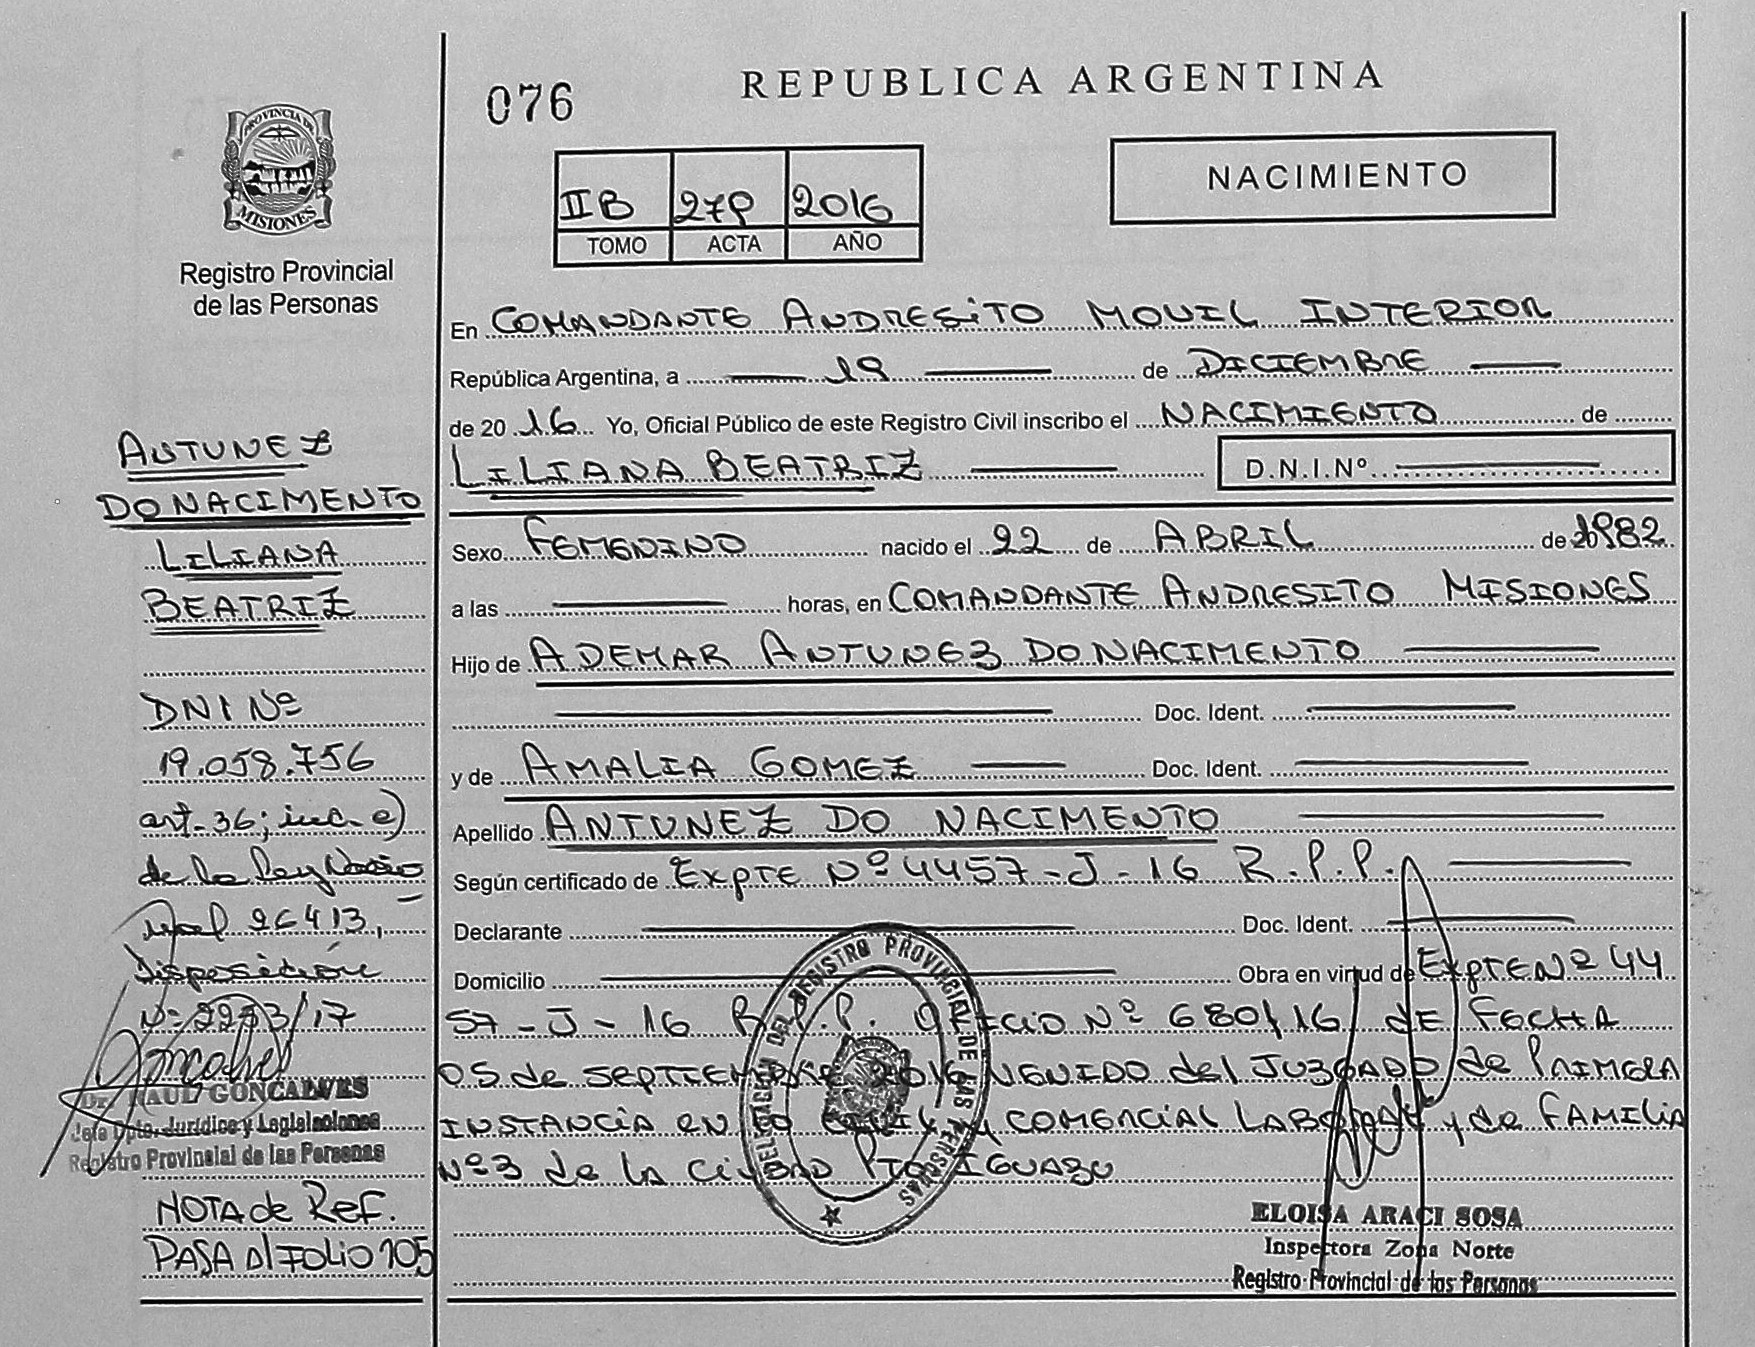 076
REPUBLICA ARGENTINA
NACIMIENTO
IIB 279 2016
TOMO ACTA AÑO
PROVINCIA DE
MISIONES
Registro Provincial
de las Personas
En COMANDANTE ANDRESITO MOVIL INTERIOR
República Argentina, a 19 de DICIEMBRE
de 2016 Yo, Oficial Público de este Registro Civil inscribo el NACIMIENTO de
LILIANA BEATRIZ D.N.I.Nº
Sexo FEMENINO nacido el 22 de ABRIL de 1982
a las horas, en COMANDANTE ANDRESITO MISIONES
Hijo de ADEMAR ANTUNEZ DO NACIMENTO
Doc. Ident.
y de AMALIA GOMEZ Doc. Ident.
Apellido ANTUNEZ DO NACIMENTO
Según certificado de EXPTE Nº 4457-J-16 R.P.P.
Declarante Doc. Ident.
Domicilio Obra en virtud de EXPTE Nº 44
57-J-16 R.P.P. OFICIO Nº 680/16 DE FECHA
05 de SEPTIEMBRE 2016 VENIDO del JUZGADO de PRIMERA
INSTANCIA EN LO CIVIL y COMERCIAL LABORAL y de FAMILIA
Nº3 de la CIUDAD PTO IGUAZU
DELEGACION DEL REGISTRO PROVINCIAL DE LAS PERSONAS
ELOISA ARACI SOSA
Inspectora Zona Norte
Registro Provincial de las Personas
ANTUNEZ
DO NACIMENTO
LILIANA
BEATRIZ
DNI Nº
19.058.756
art-36; inc. e)
de la Ley Nacio
nal 26413,
Disposición
Nº 2273/17
Goncalves
Dr. RAUL GONCALVES
Jefe Dpto. Jurídico y Legislaciones
Registro Provincial de las Personas
NOTA de Ref.
PASA Al FOLIO 105